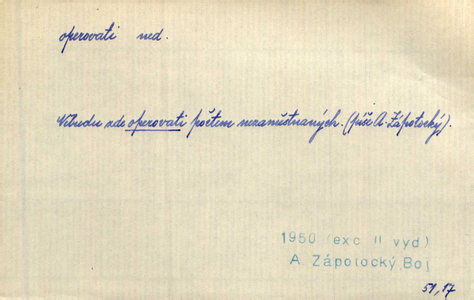 operovati ned.
Nebudu zde operovati počtem nezaměstnaných. (píše A. Zápotocký).
1950 (exc II vyd)
A Zápotocký Boj
51,17